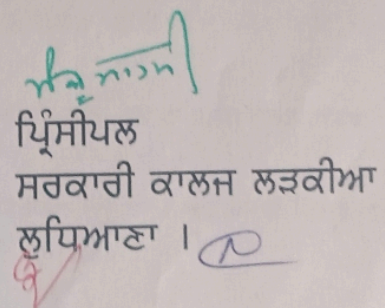 ਪ੍ਰਿੰਸੀਪਲ
ਸਰਕਾਰੀ ਕਾਲਜ ਲੜਕੀਆ
ਲੁਧਿਆਣਾ ।